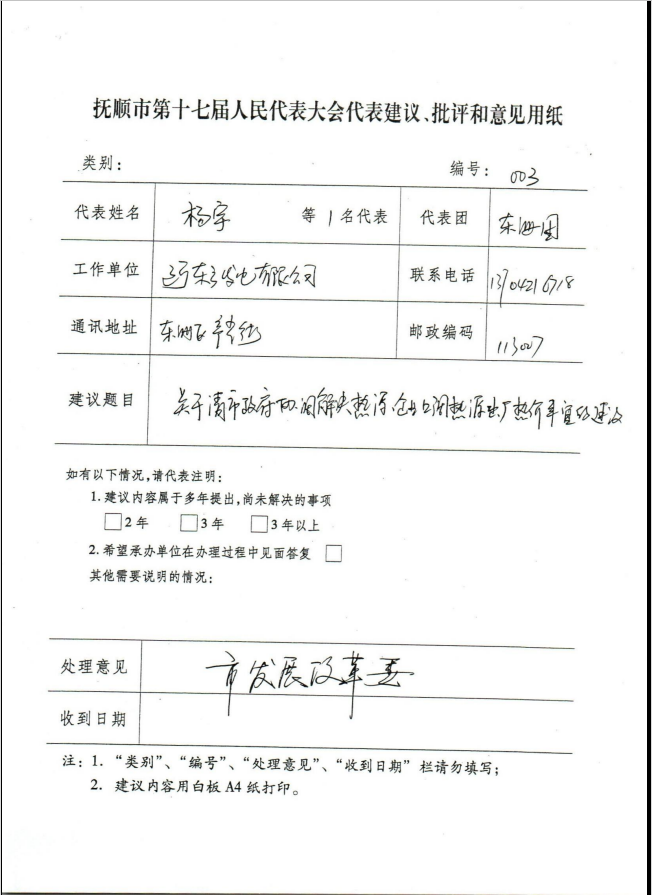 抚顺市第十七届人民代表大会代表建议、批评和意见用纸
类别： 编号：003
代表姓名 杨宇 等1名代表 代表团 东洲团
工作单位 辽东 发电有限公司 联系电话
通讯地址 东洲区 街 邮政编码 113007
建议题目 关于请市政府协调解决热源企业 热源出厂热价事宜的建议
如有以下情况，请代表注明：
1.建议内容属于多年提出，尚未解决的事项
□2年 □3年 □3年以上
2.希望承办单位在办理过程中见面答复 □
其他需要说明的情况：
处理意见 市发展改革委
收到日期
注：1. “类别”、“编号”、“处理意见”、“收到日期”栏请勿填写；
2. 建议内容用白板A4纸打印。